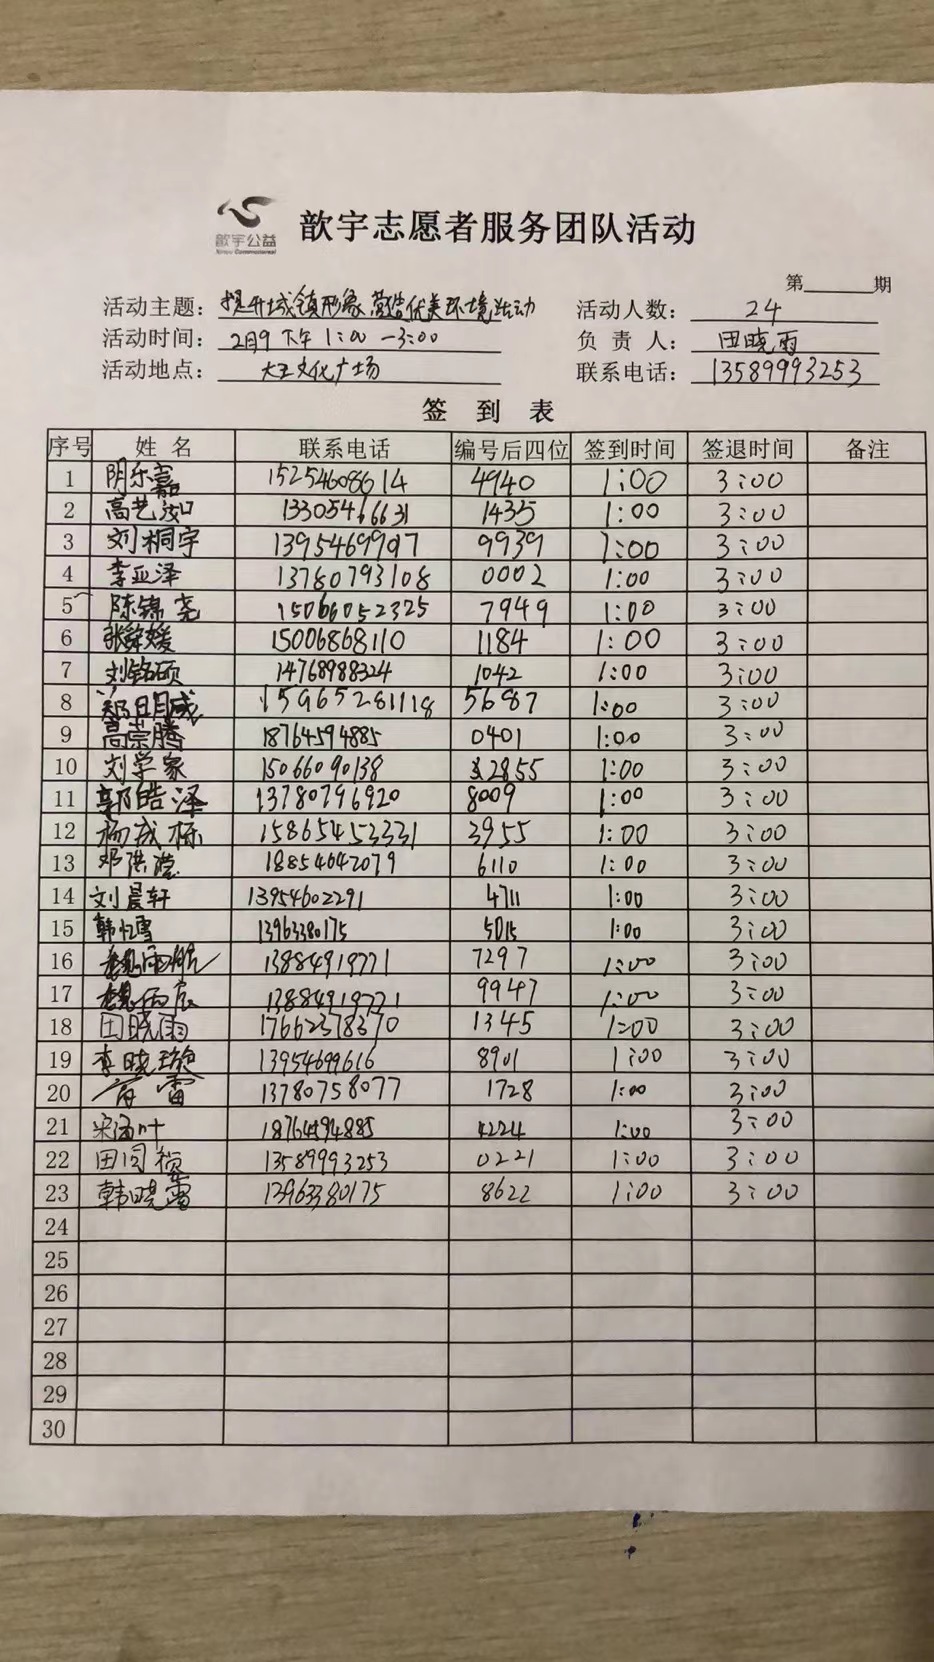 歆宇公益
歆宇志愿者服务团队活动
第 期
活动主题: 提升城镇形象 营造优美环境活动 活动人数: 24
活动时间: 2月9 下午 1:00 —3:00 负责人: 田晓雨
活动地点: 大王文化广场 联系电话: 13589993253
签 到 表
序号 姓名 联系电话 编号后四位 签到时间 签退时间 备注
1 阴乐嘉 15254608614 4940 1:00 3:00
2 高艺汝 13305466631 1435 1:00 3:00
3 刘桐宇 13954699797 9939 1:00 3:00
4 李亚泽 13780793108 0002 1:00 3:00
5 陈锦尧 15066052325 7949 1:00 3:00
6 张舜媛 15006868110 1184 1:00 3:00
7 刘铭硕 14768988324 1042 1:00 3:00
8 郑日成 15965281118 5687 1:00 3:00
9 高崇腾 18764594885 0401 1:00 3:00
10 刘学家 15066090138 2855 1:00 3:00
11 郭皓泽 13780796920 8009 1:00 3:00
12 杨成栋 15865453331 3955 1:00 3:00
13 邓洪滢 18854642079 6110 1:00 3:00
14 刘晨轩 13954602291 4711 1:00 3:00
15 韩忆雪 13963380175 5015 1:00 3:00
16 魏雨航 13884919771 7297 1:00 3:00
17 魏丙辰 13884919771 9947 1:00 3:00
18 田晓雨 17662378370 1345 1:00 3:00
19 李晓璇 13954699616 8901 1:00 3:00
20 雷 13780758077 1728 1:00 3:00
21 宋涵叶 18764594885 4224 1:00 3:00
22 田闫祯 13589993253 0221 1:00 3:00
23 韩晓雪 13963380175 8622 1:00 3:00
24
25
26
27
28
29
30